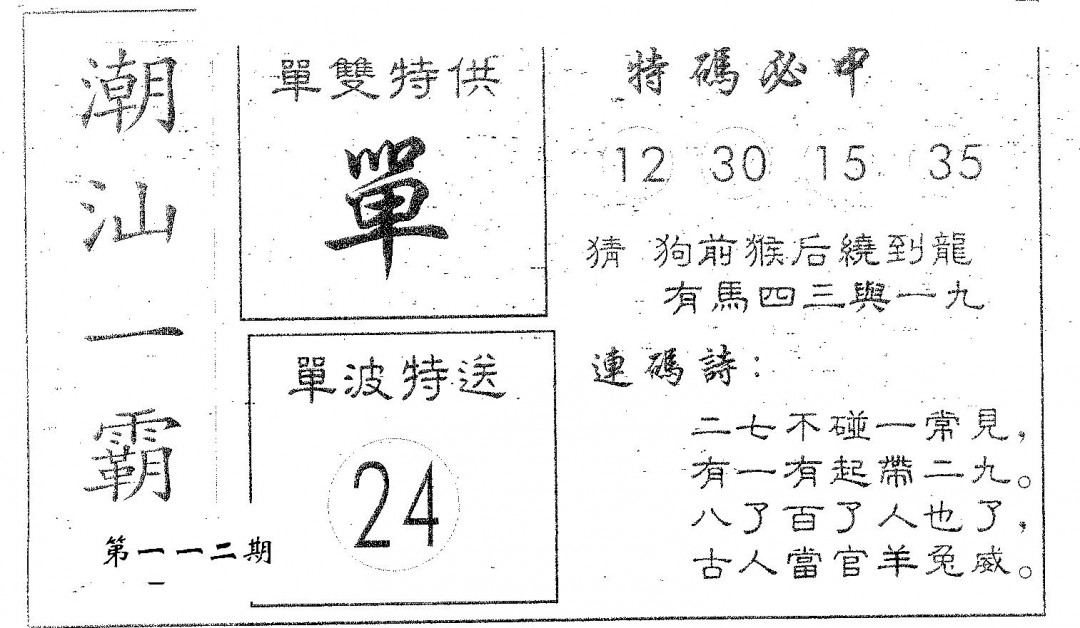 潮汕一霸
第一一二期
單雙特供
單
單波特送
24
特碼必中
12 30 15 35
猜 狗前猴后繞到龍
有馬四三與一九
連碼詩：
二七不碰一常見，
有一有起帶二九。
八了百了人也了，
古人當官羊兔威。